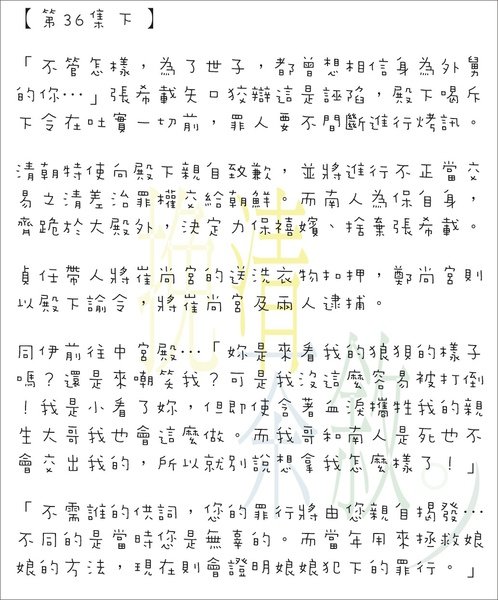 【 第36集 下 】
「不管怎樣，為了世子，都曾想相信身為外舅
的你…」張希載矢口狡辯這是誣陷，殿下喝斥
下令在吐實一切前，罪人要不間斷進行烤訊。
清朝特使向殿下親自致歉，並將進行不正當交
易之清差治罪權交給朝鮮。而南人為保自身，
齊跪於大殿外，決定力保禧嬪、捨棄張希載。
貞任帶人將崔尚宮的送洗衣物扣押，鄭尚宮則
以殿下諭令，將崔尚宮及兩人逮捕。
同伊前往中宮殿…「妳是來看我的狼狽的樣子
嗎？還是來嘲笑我？可是我沒這麼容易被打倒
！我是小看了妳，但即使含著血淚攜牲我的親
生大哥我也會這麼做。而我哥和南人是死也不
會交出我的，所以就別說想拿我怎麼樣了！」
「不需誰的供詞，您的罪行將由您親自揭發…
不同的是當時您是無辜的。而當年用來拯救娘
娘的方法，現在則會證明娘娘犯下的罪行。」